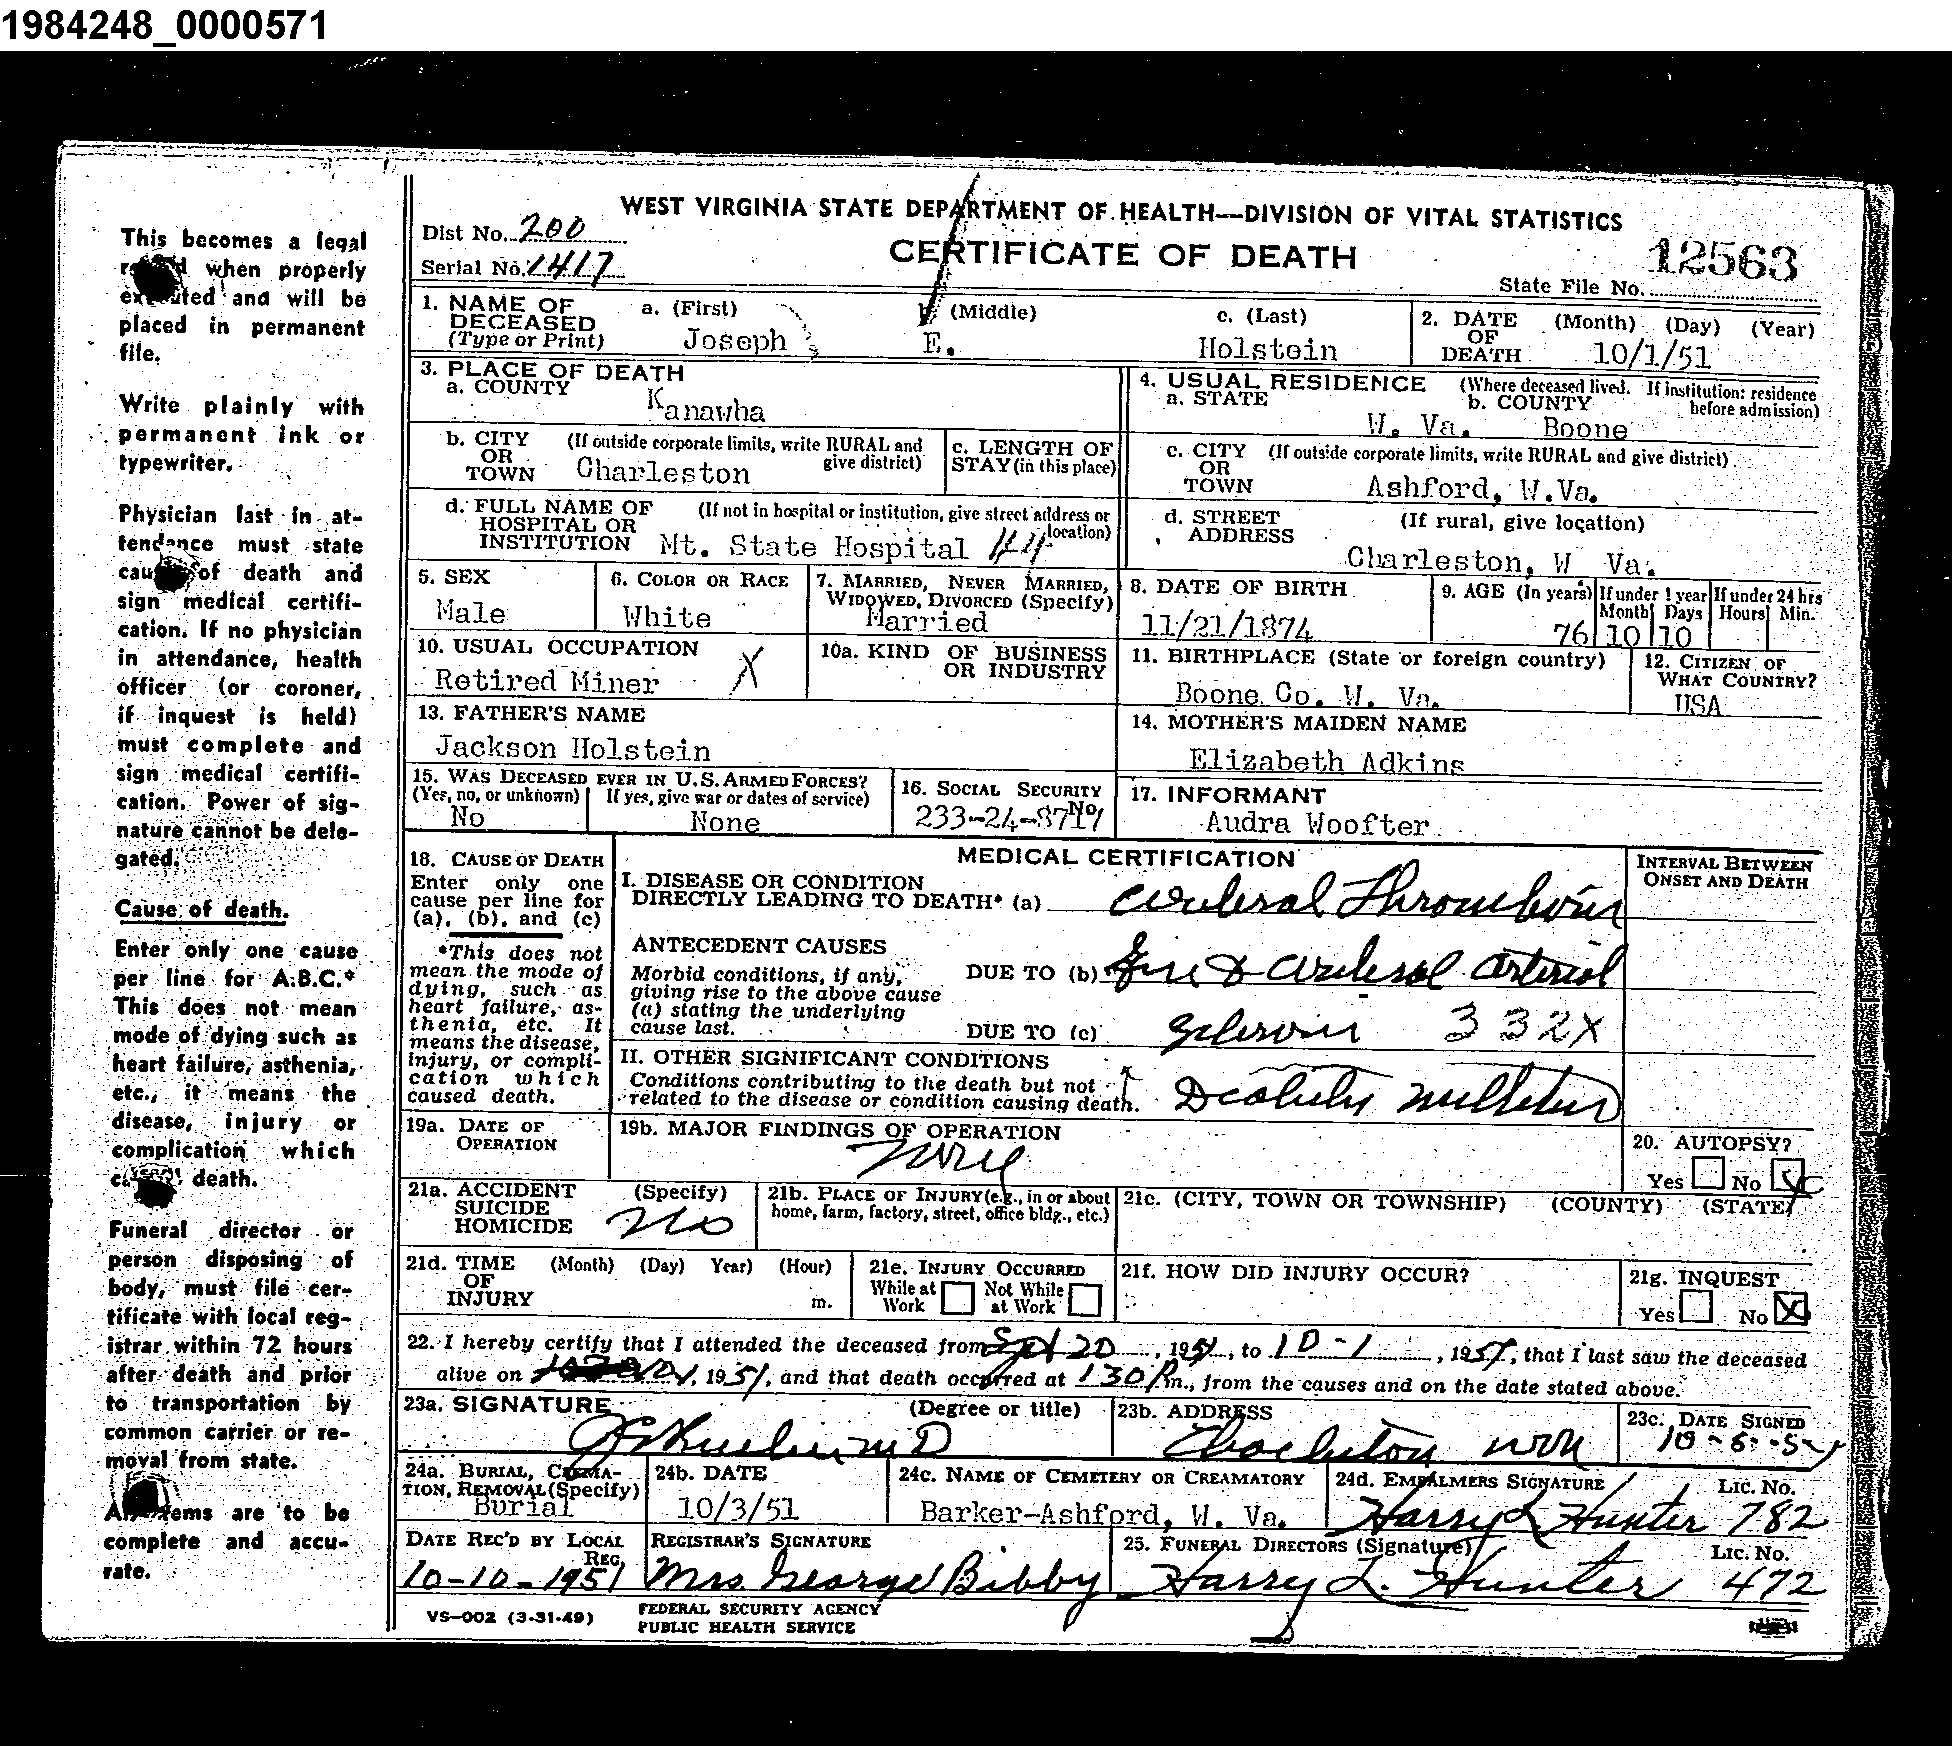 1984248_0000571
This becomes a legal
when properly
and will be
placed in permanent
file.
Write plainly with
permanent ink or
typewriter.
Physician last in at-
tendance must state
of death and
sign medical certifi-
cation. If no physician
in attendance, health
officer (or coroner,
if inquest is held)
must complete and
sign medical certifi-
cation. Power of sig-
nature cannot be dele-
gated.
Cause of death.
Enter only one cause
per line for A.B.C.*
This does not mean
mode of dying such as
heart failure, asthenia,
etc., it means the
disease, injury or
complication which
death.
Funeral director or
person disposing of
body, must file cer-
tificate with local reg-
istrar within 72 hours
after death and prior
to transportation by
common carrier or re-
moval from state.
are to be
complete and accu-
rate.
WEST VIRGINIA STATE DEPARTMENT OF HEALTH—DIVISION OF VITAL STATISTICS
Dist No. 200
CERTIFICATE OF DEATH
12563
Serial No. 1417
State File No.
1. NAME OF DECEASED (Type or Print) a. (First) Joseph b. (Middle) E. c. (Last) Holstein
2. DATE OF DEATH (Month) (Day) (Year) 10/1/51
3. PLACE OF DEATH
a. COUNTY Kanawha
4. USUAL RESIDENCE (Where deceased lived. If institution: residence before admission)
a. STATE W. Va. b. COUNTY Boone
b. CITY OR TOWN (If outside corporate limits, write RURAL and give district) Charleston
c. LENGTH OF STAY (in this place)
c. CITY OR TOWN (If outside corporate limits, write RURAL and give district) Ashford, W.Va.
d. FULL NAME OF HOSPITAL OR INSTITUTION (If not in hospital or institution, give street address or location) Mt. State Hospital 44
d. STREET ADDRESS (If rural, give location) Charleston, W Va.
5. SEX Male
6. COLOR OR RACE White
7. MARRIED, NEVER MARRIED, WIDOWED, DIVORCED (Specify) Married
8. DATE OF BIRTH 11/21/1874
9. AGE (In years) 76 If under 1 year Month 10 Days 10 If under 24 hrs Hours Min.
10. USUAL OCCUPATION Retired Miner X
10a. KIND OF BUSINESS OR INDUSTRY
11. BIRTHPLACE (State or foreign country) Boone Co. W. Va.
12. CITIZEN OF WHAT COUNTRY? USA
13. FATHER'S NAME Jackson Holstein
14. MOTHER'S MAIDEN NAME Elizabeth Adkins
15. WAS DECEASED EVER IN U.S. ARMED FORCES? (Yes, no, or unknown) No If yes, give war or dates of service) None
16. SOCIAL SECURITY No. 233-24-
17. INFORMANT Audra Woofter
18. CAUSE OF DEATH
Enter only one cause per line for (a), (b), and (c)
*This does not mean the mode of dying, such as heart failure, asthenia, etc. It means the disease, injury, or complication which caused death.
MEDICAL CERTIFICATION
INTERVAL BETWEEN ONSET AND DEATH
I. DISEASE OR CONDITION DIRECTLY LEADING TO DEATH* (a) Cerebral Thrombosis
ANTECEDENT CAUSES
Morbid conditions, if any, giving rise to the above cause (a) stating the underlying cause last.
DUE TO (b) & Cerebral Arterial
DUE TO (c) Sclerosis 332X
II. OTHER SIGNIFICANT CONDITIONS
Conditions contributing to the death but not related to the disease or condition causing death.
19a. DATE OF OPERATION
19b. MAJOR FINDINGS OF OPERATION None
20. AUTOPSY? Yes No X
21a. ACCIDENT SUICIDE HOMICIDE (Specify) No
21b. PLACE OF INJURY (e.g., in or about home, farm, factory, street, office bldg., etc.)
21c. (CITY, TOWN OR TOWNSHIP) (COUNTY) (STATE)
21d. TIME OF INJURY (Month) (Day) Year) (Hour) m.
21e. INJURY OCCURRED While at Work Not While at Work
21f. HOW DID INJURY OCCUR?
21g. INQUEST Yes No X
22. I hereby certify that I attended the deceased from Sept 20, 1951, to 10-1, 1951, that I last saw the deceased
alive on 1951, and that death occurred at 130 P.m., from the causes and on the date stated above.
23a. SIGNATURE (Degree or title) MD
23b. ADDRESS Charleston
23c. DATE SIGNED
24a. BURIAL, CREMATION, REMOVAL (Specify) Burial
24b. DATE 10/3/51
24c. NAME OF CEMETERY OR CREAMATORY Barker-Ashford, W. Va.
24d. EMBALMERS SIGNATURE Harry L Hunter Lic. No. 782
DATE REC'D BY LOCAL REG. 10-10-1951
REGISTRAR'S SIGNATURE Mrs George Bibby
25. FUNERAL DIRECTORS (Signature) Harry L. Hunter Lic. No. 472
VS-002 (3-31-49)
FEDERAL SECURITY AGENCY
PUBLIC HEALTH SERVICE